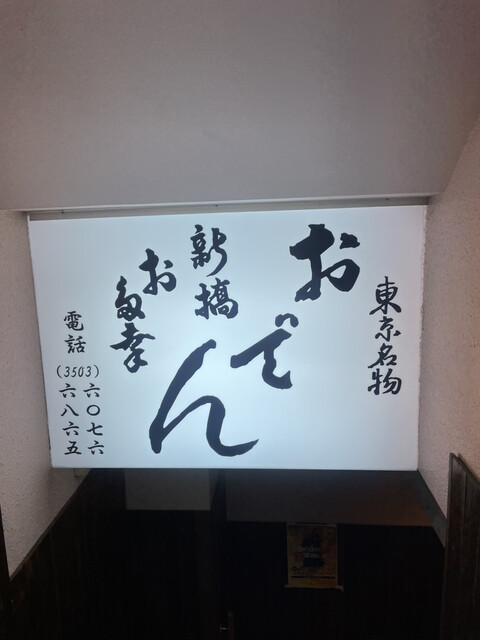 東京名物
おでん
新橋
お多幸
電話
(3503)
六〇七六
六八六五